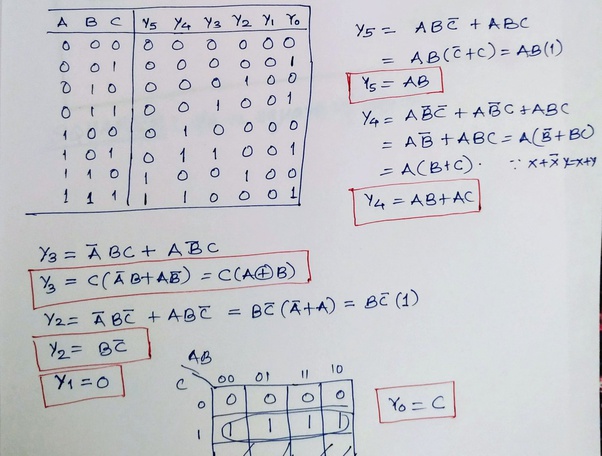 A B C Y5 Y4 Y3 Y2 Y1 Y0
0 0 0 0 0 0 0 0 0
0 0 1 0 0 0 0 0 1
0 1 0 0 0 0 1 0 0
0 1 1 0 0 1 0 0 1
1 0 0 0 1 0 0 0 0
1 0 1 0 1 1 0 0 1
1 1 0 1 0 0 1 0 0
1 1 1 1 1 0 0 0 1
Y5 = ABC̅ + ABC
= AB(C̅+C) = AB(1)
Y5 = AB
Y4 = AB̅C̅ + AB̅C + ABC
= AB̅ + ABC = A(B̅+BC)
= A(B+C). ∵ x+x̅y=x+y
Y4 = AB+AC
Y3 = A̅BC + AB̅C
Y3 = C(A̅B+AB̅) = C(A⊕B)
Y2 = A̅BC̅ + ABC̅ = BC̅(A̅+A) = BC̅(1)
Y2 = BC̅
Y1 = 0
AB
C 00 01 11 10
0 0 0 0 0
1 1 1 1 1
Y0 = C